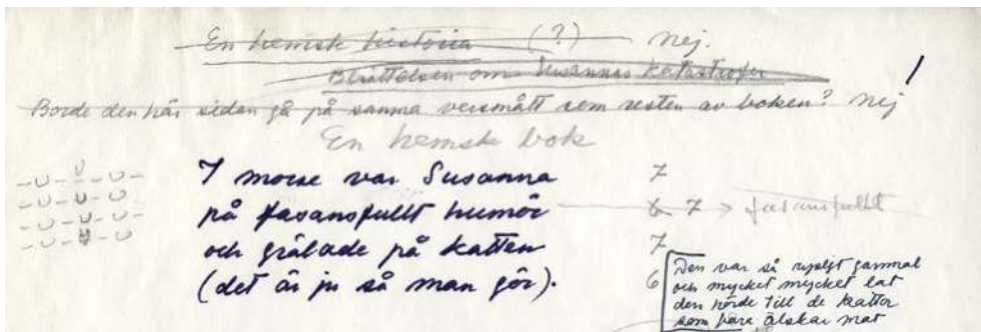 En hemsk historia (?) nej.
Berättelsen om Susannas katastrofer
Borde den här sidan gå på samma versmått som resten av boken? nej !
En hemsk bok
I morse var Susanna 7
på fasansfullt humör 6 7 > fasansfullt
och grälade på katten 7
(det är ju så man gör). 6
Den var så rysligt gammal
och mycket mycket lat
den hörde till de katter
som bara älskar mat